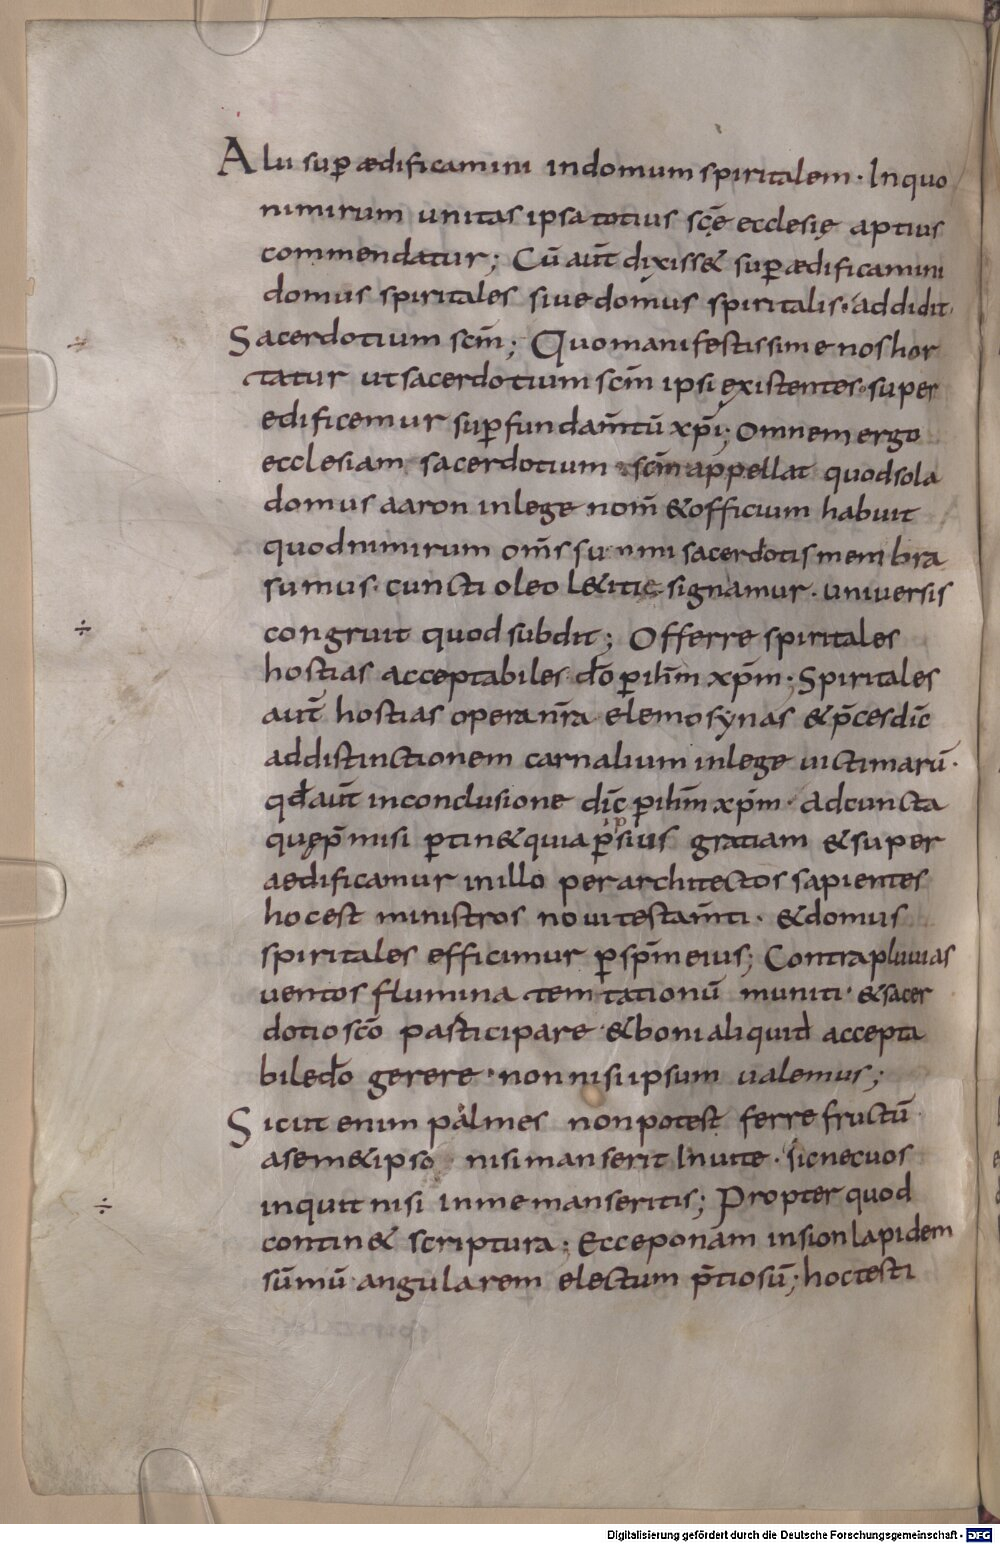 Alii sup̄ ædificamini indomum spiritalem · Inquo
nimirum unitas ipsa totius scę̄ ecclesię aptius
commendatur; Cū aut̄ dixiss& sup̄ ædificamini
domus spiritales siue domus spiritalis · addidit ·
Sacerdotium scm̄; Quo manifestissime nos hor
tatur ut sacerdotium scm̄ ipsi existentes · super
edificemur sup̄ fundam̄tū xp̄i; Omnem ergo
ecclesiam sacerdotium scm̄ appellat quod sola
domus aaron inlege nom̄ & officium habuit
quod nimirum om̄s summi sacerdotis membra
sumus · cuncti oleo l&itię signamur · uniuersis
congruit quod subdit; Offerre spiritales
hostias acceptabiles do̅ p̄ ihm̄ xp̄m · Spiritales
aut̄ hostias opera nr̄a elemosynas & p̄ces dic̄
addistinctionem carnalium inlege uictimarū ·
qd̄ aut̄ inconclusione dic̄ p̄ ihm̄ xp̄m · Adcuncta
quę p̄misi p̄tin& quia p̄ ipsius gratiam & super
aedificamur inillo per architectos sapientes
hoc est ministros noui testam̄ti · & domus
spiritales efficimur p̄ sp̄m eius; Contra pluuias
uentos flumina temtationū muniti · & sacer
dotio sc̄o participare & boni aliquid accepta
bile do̅ gerere · non nisi ipsum ualemus;
Sicut enim palmes non potest ferre fructū
asem&ipso nisi manserit Inuite · sic nec uos
inquit nisi inme manseritis; Propter quod
contin& scriptura; Ecce ponam insion lapidem
sūmū angularem electum p̄tiosū; hoc testi
Digitalisierung gefördert durch die Deutsche Forschungsgemeinschaft - DFG